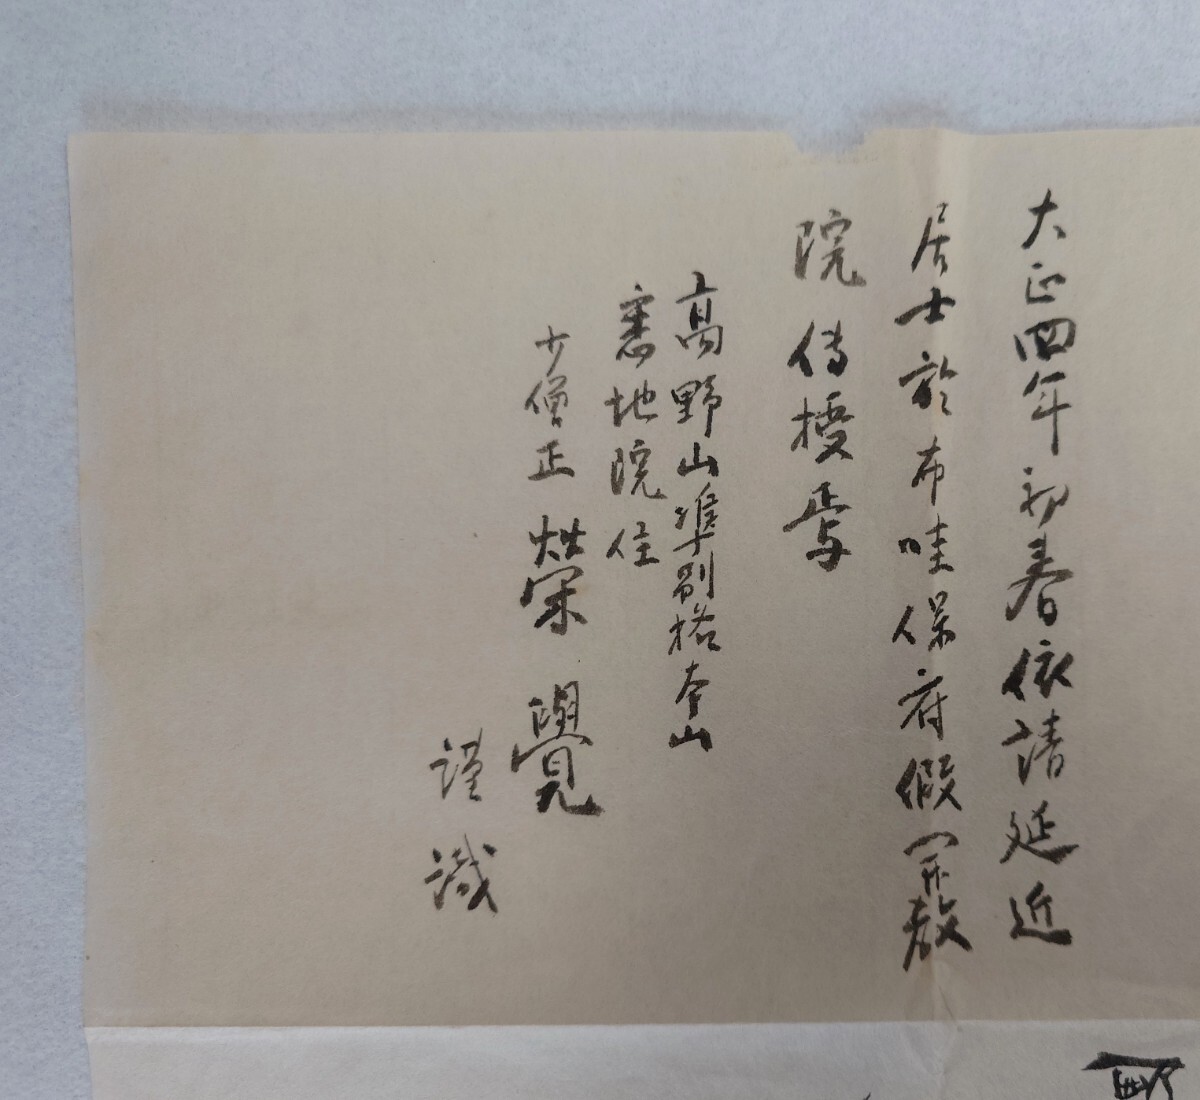 大正四年初春依請延近
居士於布哇保府假開教
院傳授焉
高野山準別格本山
悉地院住
少僧正榮覺
謹識